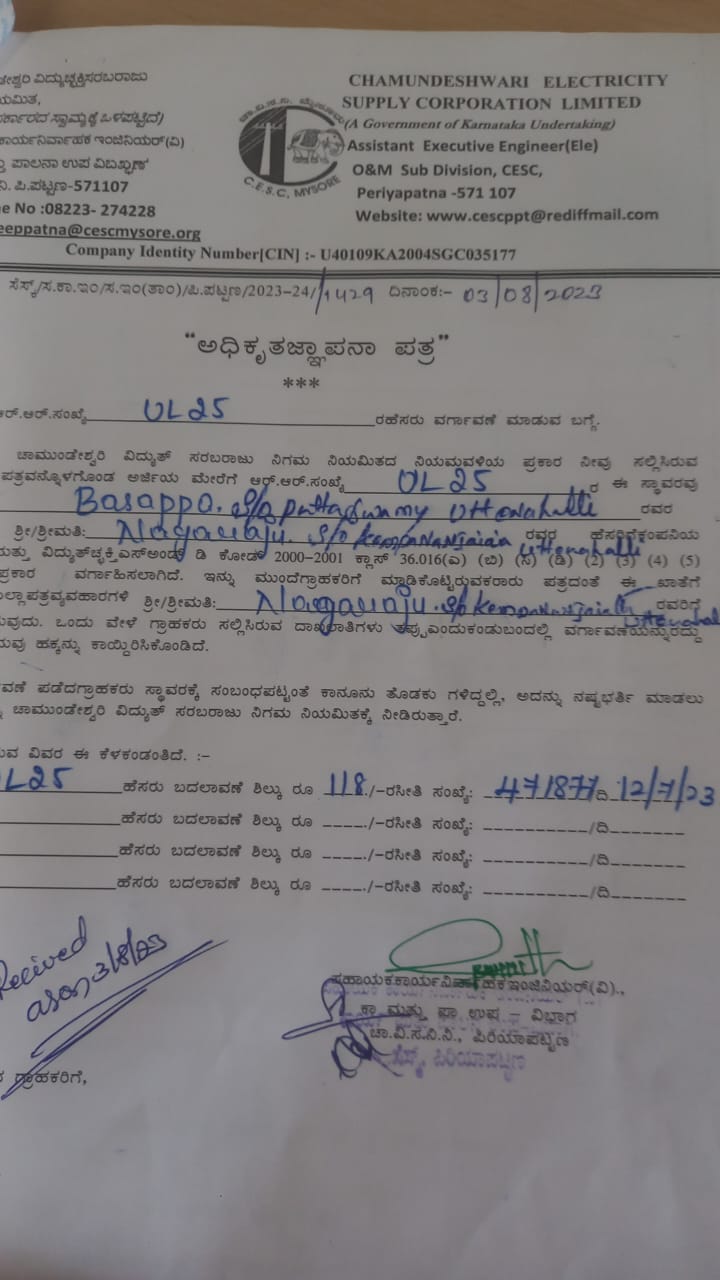 ವಿದ್ಯುಚ್ಛಕ್ತಿಸರಬರಾಜು
CHAMUNDESHWARI ELECTRICITY
SUPPLY CORPORATION LIMITED
(A Government of Karnataka Undertaking)
ಸ್ವಾಮ್ಯಕ್ಕೆ ಒಳಪಟ್ಟಿದೆ)
ಕಾರ್ಯನಿರ್ವಾಹಕ ಇಂಜಿನಿಯರ್(ವಿ)
Assistant Executive Engineer(Ele)
ಪಾಲನಾ ಉಪ
O&M Sub Division, CESC,
ಪಿ.ಪಟ್ಟಣ-571107
Periyapatna -571 107
No :08223- 274228
Website: www.cescppt@rediffmail.com
eeppatna@cescmysore.org
C.E.S.C, MYSORE
Company Identity Number[CIN] :- U40109KA2004SGC035177
ಸೆಸ್ಕ್/ಸ.ಕಾ.ಇಂ/ಸ.ಇಂ(ತಾಂ)/ಪಿ.ಪಟ್ಟಣ/2023-24/1429 ದಿನಾಂಕ:- 03/08/2023
"ಅಧಿಕೃತಜ್ಞಾಪನಾ ಪತ್ರ"
***
ಆರ್.ಆರ್.ಸಂಖ್ಯೆ UL25 ರಹೆಸರು ವರ್ಗಾವಣೆ ಮಾಡುವ ಬಗ್ಗೆ.
ಚಾಮುಂಡೇಶ್ವರಿ ವಿದ್ಯುತ್ ಸರಬರಾಜು ನಿಗಮ ನಿಯಮಿತದ ನಿಯಮವಳಿಯ ಪ್ರಕಾರ ನೀವು ಸಲ್ಲಿಸಿರುವ
ಪತ್ರವನ್ನೊಳಗೊಂಡ ಅರ್ಜಿಯ ಮೇರೆಗೆ ಆರ್.ಆರ್.ಸಂಖ್ಯೆ UL25 ರ ಈ ಸ್ಥಾವರವು
Basappa. S/o puttaswamy Uttenahalli ರವರ
ಶ್ರೀ/ಶ್ರೀಮತಿ: Nagaraju. S/o kempananjaiah Uttenahalli ರವರ ಹೆಸರಿಗೆಕಂಪನಿಯ
ಮತ್ತು ವಿದ್ಯುತ್‌ಚ್ಛಕ್ತಿಎಸ್‌ಅಂಡ್ ಡಿ ಕೋಡ್ 2000-2001 ಕ್ಲಾಸ್ 36.016(ಎ) (ಬಿ) (ಸಿ) (ಡಿ) (2) (3) (4) (5)
ಪ್ರಕಾರ ವರ್ಗಾಹಿಸಲಾಗಿದೆ. ಇನ್ನು ಮುಂದೆಗ್ರಾಹಕರಿಗೆ ಮಾಡಿಕೊಟ್ಟಿರುವಕರಾರು ಪತ್ರದಂತೆ ಈ ಖಾತೆಗೆ
ಲ್ಲಾಪತ್ರವ್ಯವಹಾರಗಳಿ ಶ್ರೀ/ಶ್ರೀಮತಿ: Nagaraju. S/o Kempananjaiah ರವರಿಗೆ
ವುದು. ಒಂದು ವೇಳೆ ಗ್ರಾಹಕರು ಸಲ್ಲಿಸಿರುವ ದಾಖಲಾತಿಗಳು ತಪ್ಪುಎಂದುಕಂಡುಬಂದಲ್ಲಿ ವರ್ಗಾವಣೆಯನ್ನುರದ್ದು
ವು ಹಕ್ಕನ್ನು ಕಾಯ್ದಿರಿಸಿಕೊಂಡಿದೆ.
ವಣೆ ಪಡೆದಗ್ರಾಹಕರು ಸ್ಥಾವರಕ್ಕೆ ಸಂಬಂಧಪಟ್ಟಂತೆ ಕಾನೂನು ತೊಡಕು ಗಳಿದ್ದಲ್ಲಿ, ಅದನ್ನು ನಷ್ಟಭರ್ತಿ ಮಾಡಲು
ಚಾಮುಂಡೇಶ್ವರಿ ವಿದ್ಯುತ್ ಸರಬರಾಜು ನಿಗಮ ನಿಯಮಿತಕ್ಕೆ ನೀಡಿರುತ್ತಾರೆ.
ವ ವಿವರ ಈ ಕೆಳಕಂಡಂತಿದೆ. :-
UL25 ಹೆಸರು ಬದಲಾವಣೆ ಶಿಲ್ಕು ರೂ 118./-ರಸೀತಿ ಸಂಖ್ಯೆ: 471877/ದಿ 12/7/23
ಹೆಸರು ಬದಲಾವಣೆ ಶಿಲ್ಕು ರೂ ____./-ರಸೀತಿ ಸಂಖ್ಯೆ: __________/ದಿ_______
ಹೆಸರು ಬದಲಾವಣೆ ಶಿಲ್ಕು ರೂ ____./-ರಸೀತಿ ಸಂಖ್ಯೆ: __________/ದಿ_______
ಹೆಸರು ಬದಲಾವಣೆ ಶಿಲ್ಕು ರೂ ____./-ರಸೀತಿ ಸಂಖ್ಯೆ: __________/ದಿ_______
Recived
as on 3/8/23
ಸಹಾಯಕಕಾರ್ಯನಿರ್ವಾಹಕಇಂಜಿನಿಯರ್(ವಿ).,
ಕಾ ಮತ್ತು ಪಾ ಉಪ – ವಿಭಾಗ
ಚಾ.ವಿ.ಸ.ನಿ.ನಿ., ಪಿರಿಯಾಪಟ್ಟಣ
ಸೆಸ್ಕ್, ಪಿರಿಯಾಪಟ್ಟಣ
ಗ್ರಾಹಕರಿಗೆ,